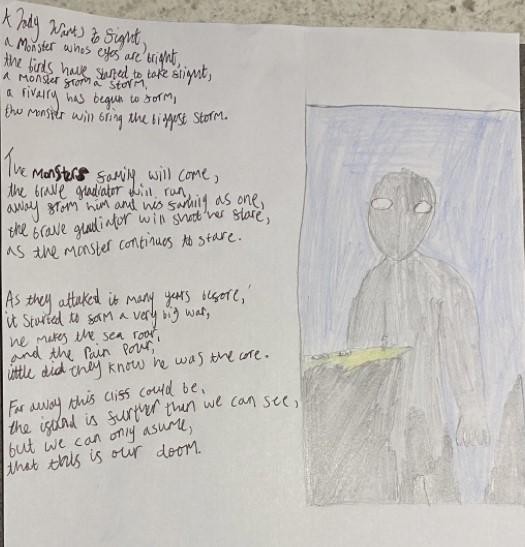 A Lady Wants to fight,
a Monster whos eyes are bright,
the birds have started to take flight,
a monster from a storm,
a rivalry has begun to form,
the monster will bring the biggest storm.
The Monsters family will come,
the brave gladiator will run,
away from him and his family as one,
the brave gladiator will shoot her flare,
as the monster continues to stare.
As they attaked it many years before,
it started to form a very big war,
he makes the sea roar,
and the Rain Pour,
little did they know he was the core.
Far away this cliff could be,
the island is further then we can see,
but we can only asume,
that this is our doom.